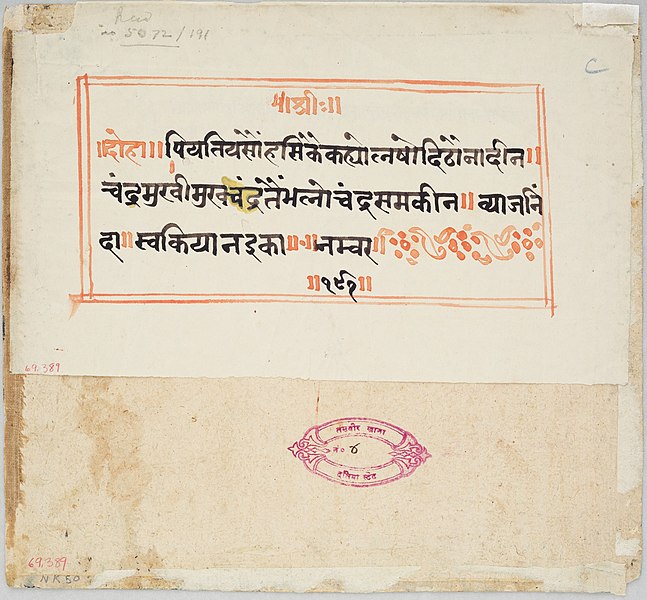 5072/191
C
॥श्रीः॥
॥दोहा॥ पियतियसौंहसिंकैकह्योलषोदिठौनादीन॥
चंद्रमुखीमुखचंद्रतैंभलोचंद्रसमकीन॥ व्याजनिं
दा॥ स्वकियानइका॥॰॥नम्बर॥
॥१९१॥
69.389
तसवीर खाना
नं० ४
दतिया स्टेट
69.389
NK50